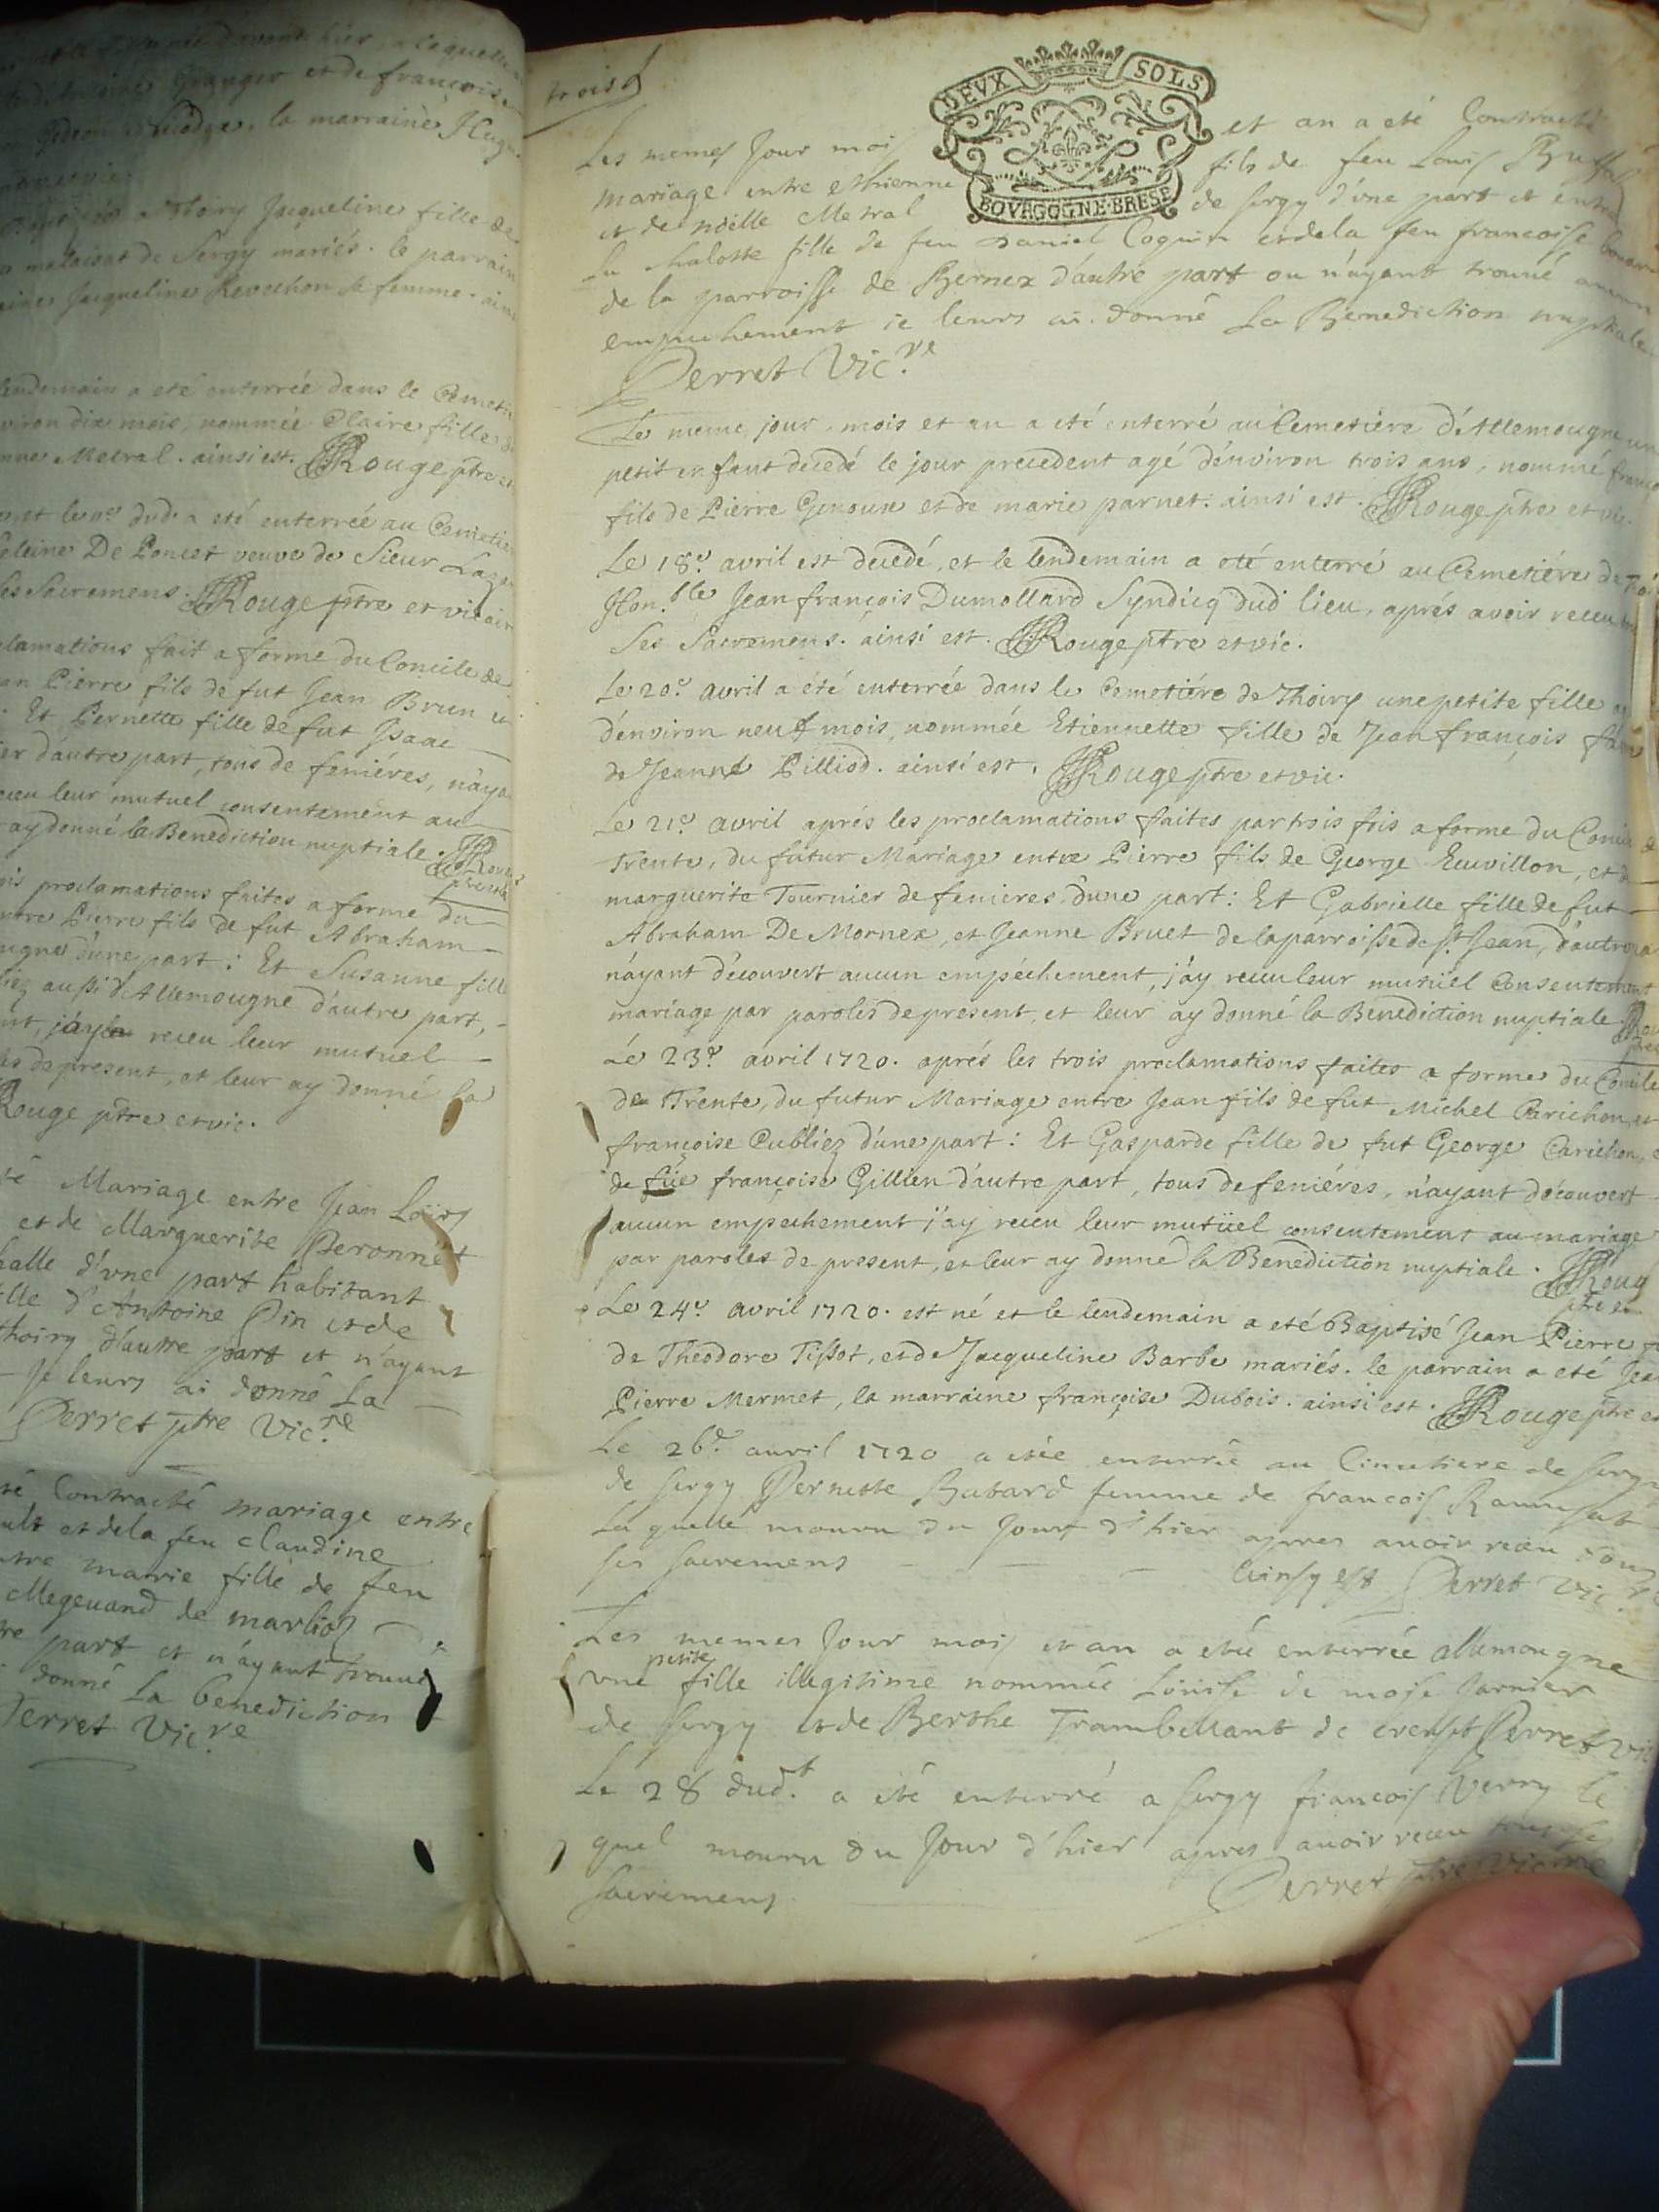 Granger et de françoise
la marraine Hugu
Thoiry Jacqueline fille de
de Sergy mariés. le parrain
Jacqueline Revechon sa femme. ains
lendemain a eté enterrée dans le Cemetie
viron dix mois, nommée Claire fille d
Metral. ainsi est. JRouge ptre et
dud. a eté enterrée au Cemetie
De Poncet veuve de Sieur Laza
les Sacremens. JRouge ptre et vicair
clamations fait a forme du Concile de
an Pierre fils de fut Jean Brun et
Et Pernette fille de fut Isaac
er d'autre part, tous de feniéres, n'aya
receu leur mutuel consentement au
ay donné la Benediction nuptiale. JRouge
ois proclamations faites a forme du
ntre Pierre fils de fut Abraham
ugne d'une part: Et Susanne fille
iez aussi d'Allemougne d'autre part,
nt, j'ay receu leur mutuel
es de present, et leur ay donné la
Rouge ptre et vic.
té Mariage entre Jean Loüis
et de Marguerite Peronnet
halle d'vne part habitant
ille d'Antoine Pin et de
Thoiry d'autre part et n'ayant
Je leurs ai donné La
Perret ptre vic.re
té Contracté mariage entre
ult et de la feu Claudine
ntre marie fille de feu
Megevand de marlioz
re part et n'áyant trouué
donné La benediction
Perret Vic.re
trois
DEVX SOLS
BOVRGOGNE·BRESE
Les memes Jour mois et an a eté Contracté
mariage entre ethienne fils de feu Louis Buffa
et de noëlle Metral de sergy d'vne part et entre
La chalotte fille de feu Daniel Coquin et de la feu francoise
de la parroisse de Bernex d'autre part ou n'ayant trouué aucun
empechement ie leurs ai donné La Benediction nuptiale
Perret Vic.re
Le meme jour, mois et an a eté enterré au Cemetiére d'Allemougne un
petit enfant decedé le jour precedent agé d'environ trois ans, nommé franco
fils de Pierre Genoux et de marie parnet. ainsi est. JRouge ptre et vic.
Le 18.e avril est decedé, et le lendemain a eté enterré au Cemetiére de Thoi
Hon.ble Jean françois Dumollard Syndicq dud lieu, aprés avoir receu
Ses Sacremens. ainsi est. JRouge ptre et vic.
Le 20.e avril a été enterrée dans le Cemetiére de Thoiry une petite fille
d'environ neuf mois, nommée Etiennette fille de Jean françois
de Jeanne Pilliod. ainsi est. JRouge ptre et vic.
Le 21.e avril aprés les proclamations faites par trois fois a forme du Concile de
Trente, du futur Mariage entre Pierre fils de George Emvillon, et de
marguerite Tournier de fenieres d'une part: Et Gabrielle fille de fut
Abraham De Mornex, et Jeanne Bruet de la parroisse de St Jean, d'autre pa
n'ayant découvert aucun empéchement, j'ay receu leur mutuel Consentement
mariage par paroles de present, et leur ay donné la Benediction nuptiale. JRou
Le 23.e avril 1720. aprés les trois proclamations faites a forme du Concile
de Trente, du futur Mariage entre Jean fils de fut Michel Carichon, et
françoise Publiez d'une part: Et Gasparde fille de fut George Carichon, e
de füe françoise Gillien d'autre part, tous de feniéres, n'ayant découvert
aucun empechement j'ay receu leur mutüel consentement au mariage
par paroles de present, et leur ay donné la Benediction nuptiale. JRoug
ptre et
Le 24.e avril 1720. est né et le lendemain a eté Baptisé Jean Pierre fi
de Theodore Tissot, et de Jacqueline Barbe mariés. le parrain a eté Jea
Pierre Mermet, la marraine françoise Dubois. ainsi est. JRouge ptre et
Le 26.e auril 1720 a etée enterrée au Cimetiere de sergy
de sergy Pernette Babard femme de francois Ramusat
La quelle mouru du Jourt d'hier apres auoir receu tous
ses sacremens Ainsy est Perret Vic.re
Les memes Jour mois et an a etée enterrée allemougne
vne petite fille illegitime nommée Loüise de moise Jarnier
de sergy et de Berthe Trambellant de crenset Perret vic
Le 28 dud.t a eté enterré a sergy francois Verny le
quel mouru du Jour d'hier apres auoir receu tous ses
sacremens Perret ptre Vicaire